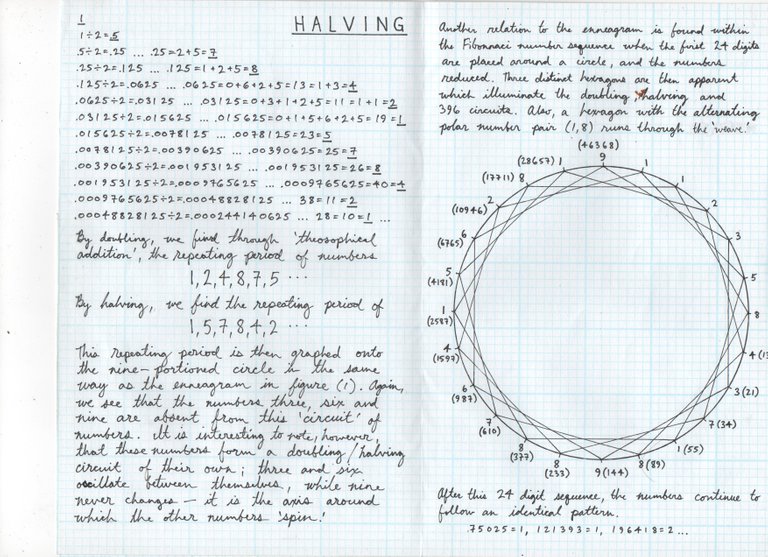 HALVING
1
1÷2=.5
.5÷2=.25 ... .25=2+5=7
.25÷2=.125 ... .125=1+2+5=8
.125÷2=.0625 ... .0625=0+6+2+5=13=1+3=4
.0625÷2=.03125 ... .03125=0+3+1+2+5=11=1+1=2
.03125÷2=.015625 ... .015625=0+1+5+6+2+5=19=1
.015625÷2=.0078125 ... .0078125=23=5
.0078125÷2=.00390625 ... .00390625=25=7
.00390625÷2=.001953125 ... .001953125=26=8
.001953125÷2=.0009765625 ... .0009765625=40=4
.0009765625÷2=.00048828125 ... 38=11=2
.00048828125÷2=.000244140625 ... 28=10=1 ...
By doubling, we find through 'theosophical
addition', the repeating period of numbers
1,2,4,8,7,5 ...
By halving, we find the repeating period of
1,5,7,8,4,2 ...
This repeating period is then graphed onto
the nine-portioned circle in the same
way as the enneagram in figure (1). Again,
we see that the numbers three, six and
nine are absent from this 'circuit' of
numbers. It is interesting to note, however,
that these numbers form a doubling/halving
circuit of their own; three and six
oscillate between themselves, while nine
never changes — it is the axis around
which the other numbers 'spin.'
Another relation to the enneagram is found within
the Fibonnaci number sequence when the first 24 digits
are placed around a circle, and the numbers
reduced. Three distinct hexagons are then apparent
which illuminate the doubling, halving and
396 circuits. Also, a hexagon with the alternating
polar number pair (1,8) runs through the 'weave.'
(46368)
9
1
1
2
3
5
8
4 (13
3 (21)
7 (34)
1 (55)
8 (89)
9 (144)
8
(233)
8
(377)
7
(610)
6
(987)
4
(1597)
1
(2587)
5
(4181)
6
(6765)
2
(10946)
8
(17711)
1
(28657)
After this 24 digit sequence, the numbers continue to
follow an identical pattern.
75025=1, 121393=1, 196418=2 ...